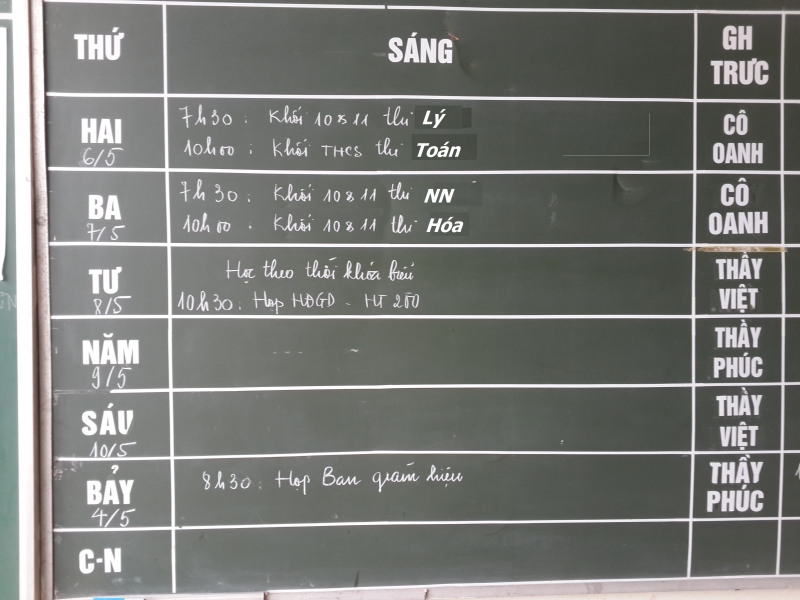 THỨ SÁNG GH TRƯC
HAI 6/5 CÔ OANH
7h30: Khối 10 & 11 thi Lý
10h00: Khối THCS thi Toán
BA 7/5 CÔ OANH
7h30: Khối 10 & 11 thi NN
10h00: Khối 10 & 11 thi Hóa
TƯ 8/5 THẦY VIỆT
Học theo thời khóa biểu
10h30: Họp HĐGD - HT 280
NĂM 9/5 THẦY PHÚC
SÁU 10/5 THẦY VIỆT
BẢY 4/5 THẦY PHÚC
8h30: Họp Ban giám hiệu
C-N